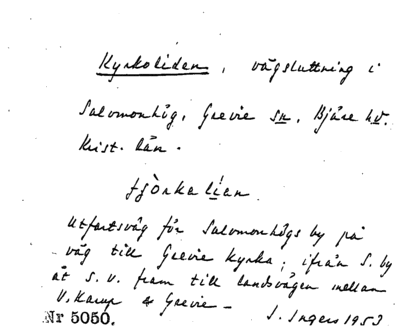 Kyrkoliden, vägsluttning i
Salomonhög, Grevie sn, Bjäre hd.
Krist. län.
fjòrkalían
Utfartsväg för Salomonhögs by på
väg till Grevie kyrka; ifrån S. by
åt S.V. fram till landsvägen mellan
V. Karup & Grevie –
Nr 5050. I. Ingers 1953